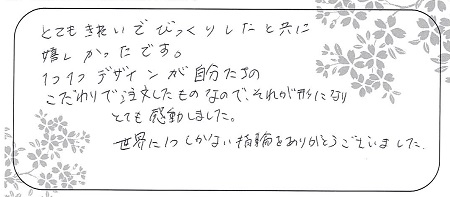 とてもきれいでびっくりしたと共に
嬉しかったです。
1つ1つデザインが自分たちの
こだわりで注文したものなので、それが形になり
とても感動しました。
世界に1つしかない指輪をありがとうございました.